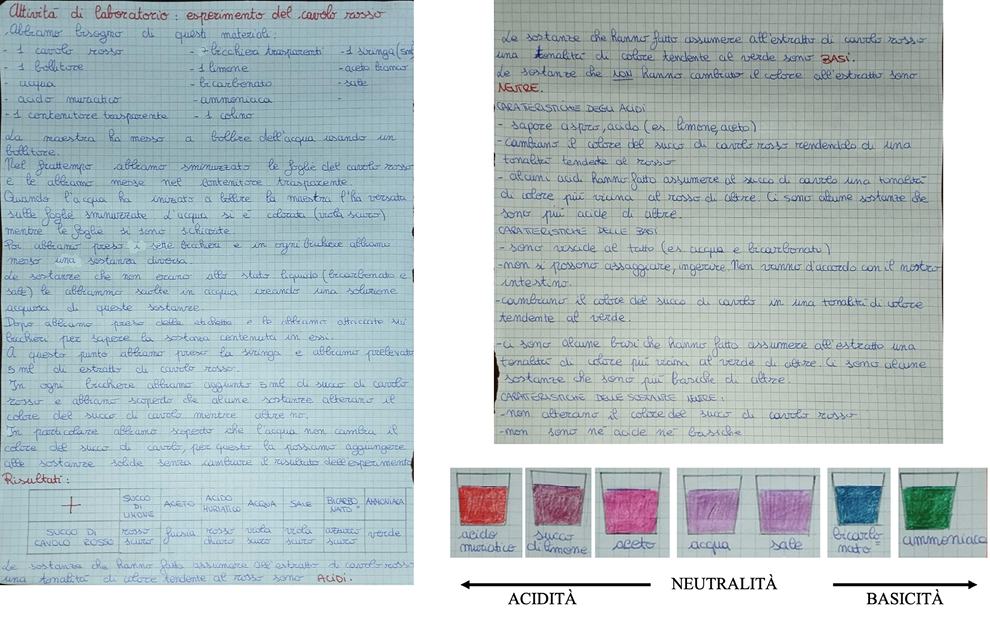 Attività di laboratorio: esperimento del cavolo rosso
Abbiamo bisogno di questi materiali:
- 1 cavolo rosso - 7 bicchieri trasparenti - 1 siringa (5ml
- 1 bollitore - 1 limone - aceto bianco
acqua - bicarbonato - sale
- acido muriatico - ammoniaca -
- 1 contenitore trasparente - 1 colino
La maestra ha messo a bollire dell'acqua usando un
bollitore.
Nel frattempo abbiamo sminuzzato le foglie del cavolo rosso
e le abbiamo messe nel contenitore trasparente.
Quando l'acqua ha iniziato a bollire la maestra l'ha versata
sulle foglie sminuzzate l'acqua si è colorata (viola scuro)
mentre le foglie si sono schiarite.
Poi abbiamo preso i sette bicchieri e in ogni bicchiere abbiamo
messo una sostanza diversa.
Le sostanze che non erano allo stato liquido (bicarbonato e
sale) le abbiammo sciolte in acqua creando una soluzione
acquosa di queste sostanze.
Dopo abbiamo preso delle etichette e le abbiamo attaccate sui
bicchieri per sapere la sostanza contenuta in essi.
A questo punto abbiamo preso la siringa e abbiamo prelevato
5 ml di estratto di cavolo rosso.
In ogni bicchiere abbiamo aggiunto 5 ml di succo di cavolo
rosso e abbiamo scoperto che alcune sostanze alterano il
colore del succo di cavolo mentre altre no.
In particolare abbiamo scoperto che l'acqua non cambia il
colore del succo di cavolo, per questo la possiamo aggiungere
alle sostanze solide senza cambiare il risultato dell'esperimento
Risultati:
+ SUCCO DI LIMONE ACETO ACIDO MURIATICO ACQUA SALE BICARBONATO AMMONIACA
SUCCO DI CAVOLO ROSSO rosso scuro fucsia rosso chiaro viola scuro viola scuro azzurro scuro verde
Le sostanze che hanno fatto assumere all'estratto di cavolo rosso
una tonalità di colore tendente al rosso sono ACIDI.
Le sostanze che hanno fatto assumere all'estratto di cavolo rosso
una tonalità di colore tendente al verde sono BASI.
Le sostanze che NON hanno cambiato il colore all'estratto sono
NEUTRE.
CARATTERISTICHE DEGLI ACIDI
- sapore aspro, acido (es. limone, aceto)
- cambiano il colore del succo di cavolo rosso rendendolo di una
tonalità tendente al rosso
- alcuni acidi hanno fatto assumere al succo di cavolo una tonalità
di colore più vicina al rosso di altre. Ci sono alcune sostanze che
sono più acide di altre.
CARATTERISTICHE DELLE BASI
- sono viscide al tatto (es. acqua e bicarbonato)
- non si possono assaggiare, ingerire. Non vanno d'accordo con il nostro
intestino.
- cambiano il colore del succo di cavolo in una tonalità di colore
tendente al verde.
- ci sono alcune basi che hanno fatto assumere all'estratto una
tonalità di colore più vicina al verde di altre. Ci sono alcune
sostanze che sono più basiche di altre.
CARATTERISTICHE DELLE SOSTANZE NEUTRE:
- non alterano il colore del succo di cavolo rosso
- non sono né acide né basiche
acido muriatico
succo di limone
aceto
acqua
sale
bicarbonato
ammoniaca
ACIDITÀ
NEUTRALITÀ
BASICITÀ